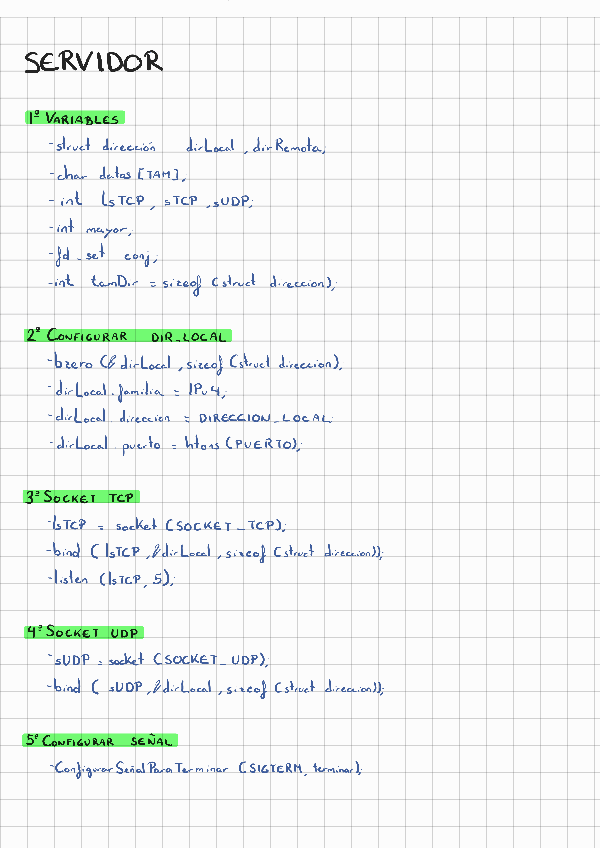 SERVIDOR
1º VARIABLES
-struct dirección dirLocal, dirRemota;
-char datos [TAM],
-int lsTCP, sTCP, sUDP;
-int mayor;
-fd_set conj;
-int tamDir = sizeof (struct direccion);
2º CONFIGURAR DIR_LOCAL
-bzero (& dirLocal, sizeof (struct direccion);
-dirLocal.familia = IPv4;
-dirLocal direccion = DIRECCION_LOCAL
-dirLocal.puerto = htons (PUERTO);
3º SOCKET TCP
-lsTCP = socket (SOCKET_TCP);
-bind (lsTCP, & dirLocal, sizeof (struct direccion));
-listen (lsTCP, 5);
4º SOCKET UDP
-sUDP = socket (SOCKET_UDP);
-bind ( sUDP, & dirLocal, sizeof (struct direccion));
5º CONFIGURAR SEÑAL
-ConfigurarSeñalParaTerminar (SIGTERM, terminar);